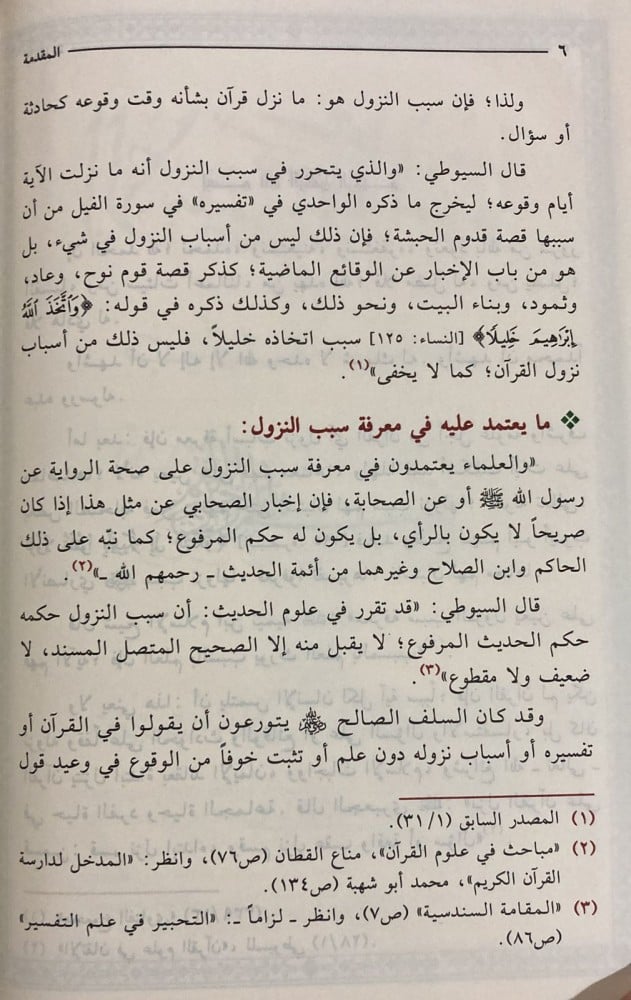 ٦ المقدمة
ولذا؛ فإن سبب النزول هو: ما نزل قرآن بشأنه وقت وقوعه كحادثة
أو سؤال.
قال السيوطي: «والذي يتحرر في سبب النزول أنه ما نزلت الآية
أيام وقوعه؛ ليخرج ما ذكره الواحدي في «تفسيره» في سورة الفيل من أن
سببها قصة قدوم الحبشة؛ فإن ذلك ليس من أسباب النزول في شيء، بل
هو من باب الإخبار عن الوقائع الماضية؛ كذكر قصة قوم نوح، وعاد،
وثمود، وبناء البيت، ونحو ذلك، وكذلك ذكره في قوله: ﴿وَٱتَّخَذَ ٱللَّهُ
إِبْرَٰهِيمَ خَلِيلًا﴾ [النساء: ١٢٥] سبب اتخاذه خليلاً، فليس ذلك من أسباب
نزول القرآن؛ كما لا يخفى»(١).
❖ ما يعتمد عليه في معرفة سبب النزول:
«والعلماء يعتمدون في معرفة سبب النزول على صحة الرواية عن
رسول الله ﷺ أو عن الصحابة، فإن إخبار الصحابي عن مثل هذا إذا كان
صريحاً لا يكون بالرأي، بل يكون له حكم المرفوع؛ كما نبّه على ذلك
الحاكم وابن الصلاح وغيرهما من أئمة الحديث ـ رحمهم الله ـ»(٢).
قال السيوطي: «قد تقرر في علوم الحديث: أن سبب النزول حكمه
حكم الحديث المرفوع؛ لا يقبل منه إلا الصحيح المتصل المسند، لا
ضعيف ولا مقطوع»(٣).
وقد كان السلف الصالح يتورعون أن يقولوا في القرآن أو
تفسيره أو أسباب نزوله دون علم أو تثبت خوفاً من الوقوع في وعيد قول
(١) المصدر السابق (٣١/١).
(٢) «مباحث في علوم القرآن»، مناع القطان (ص٧٦)، وانظر: «المدخل لدارسة
القرآن الكريم»، محمد أبو شهبة (ص١٣٤).
(٣) «المقامة السندسية» (ص٧)، وانظر ـ لزاماً ـ: «التحبير في علم التفسير»
(ص٨٦).